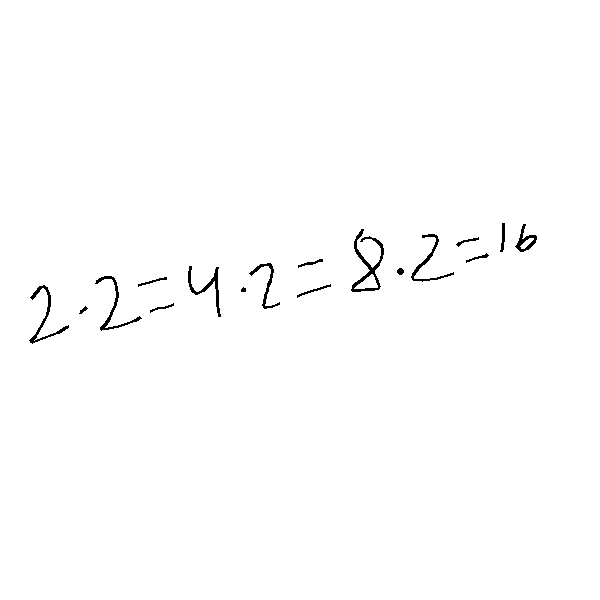 2·2=4·2=8·2=16